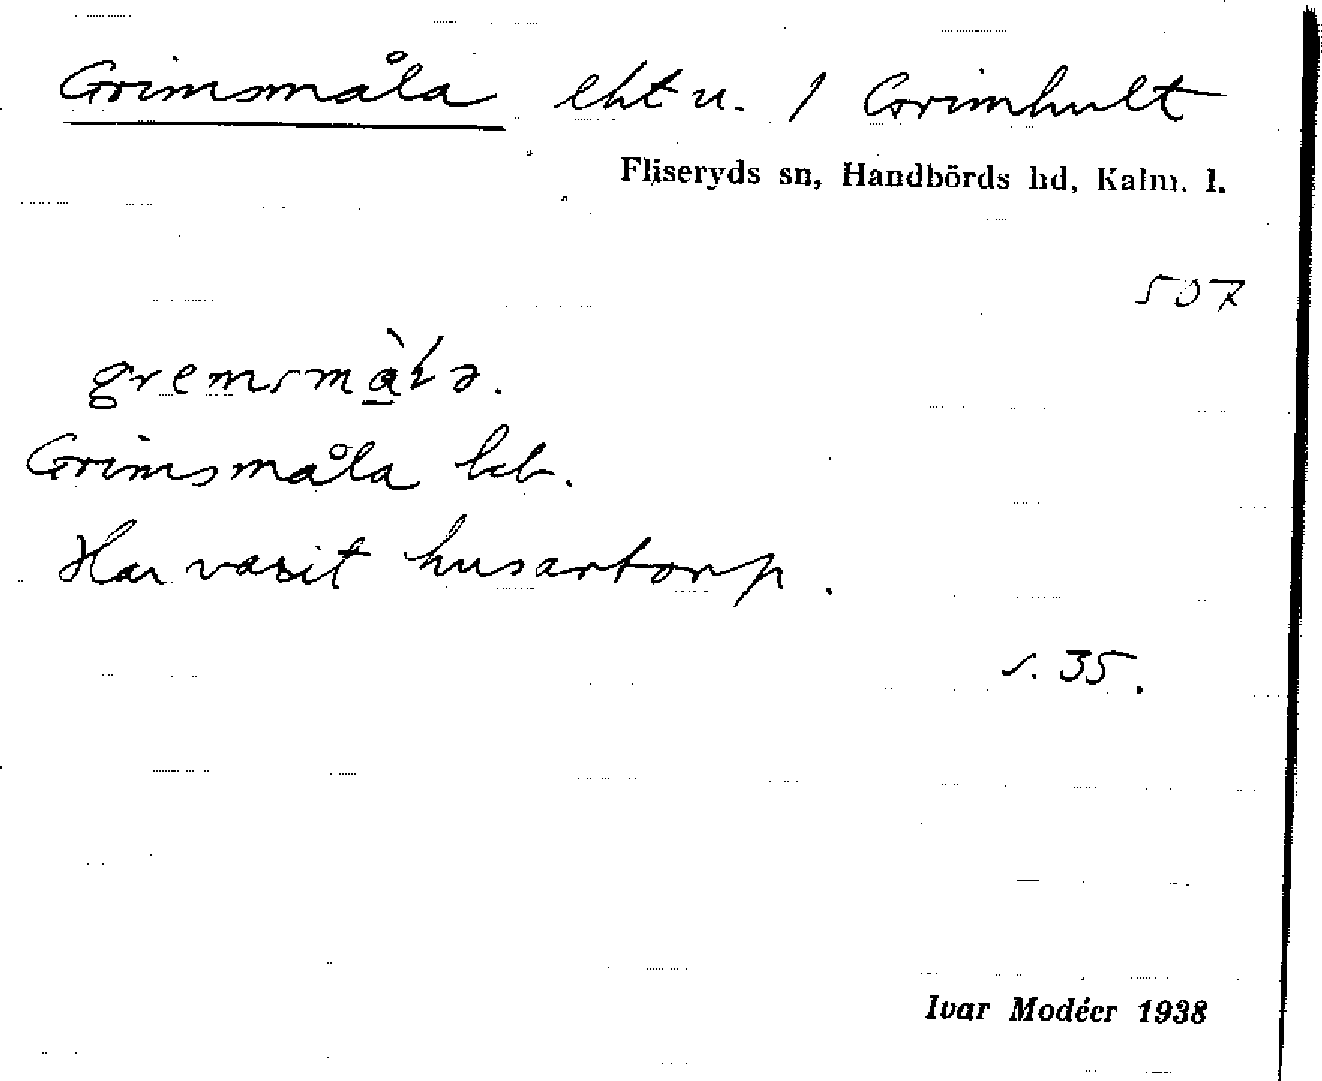 Grimsmåla lht u. / Grimhult
Fliseryds sn, Handbörds hd, Kalm. l.
507
gremsmåla.
Grimsmåla
Har varit husartorp.
s. 35.
Ivar Modéer 1938